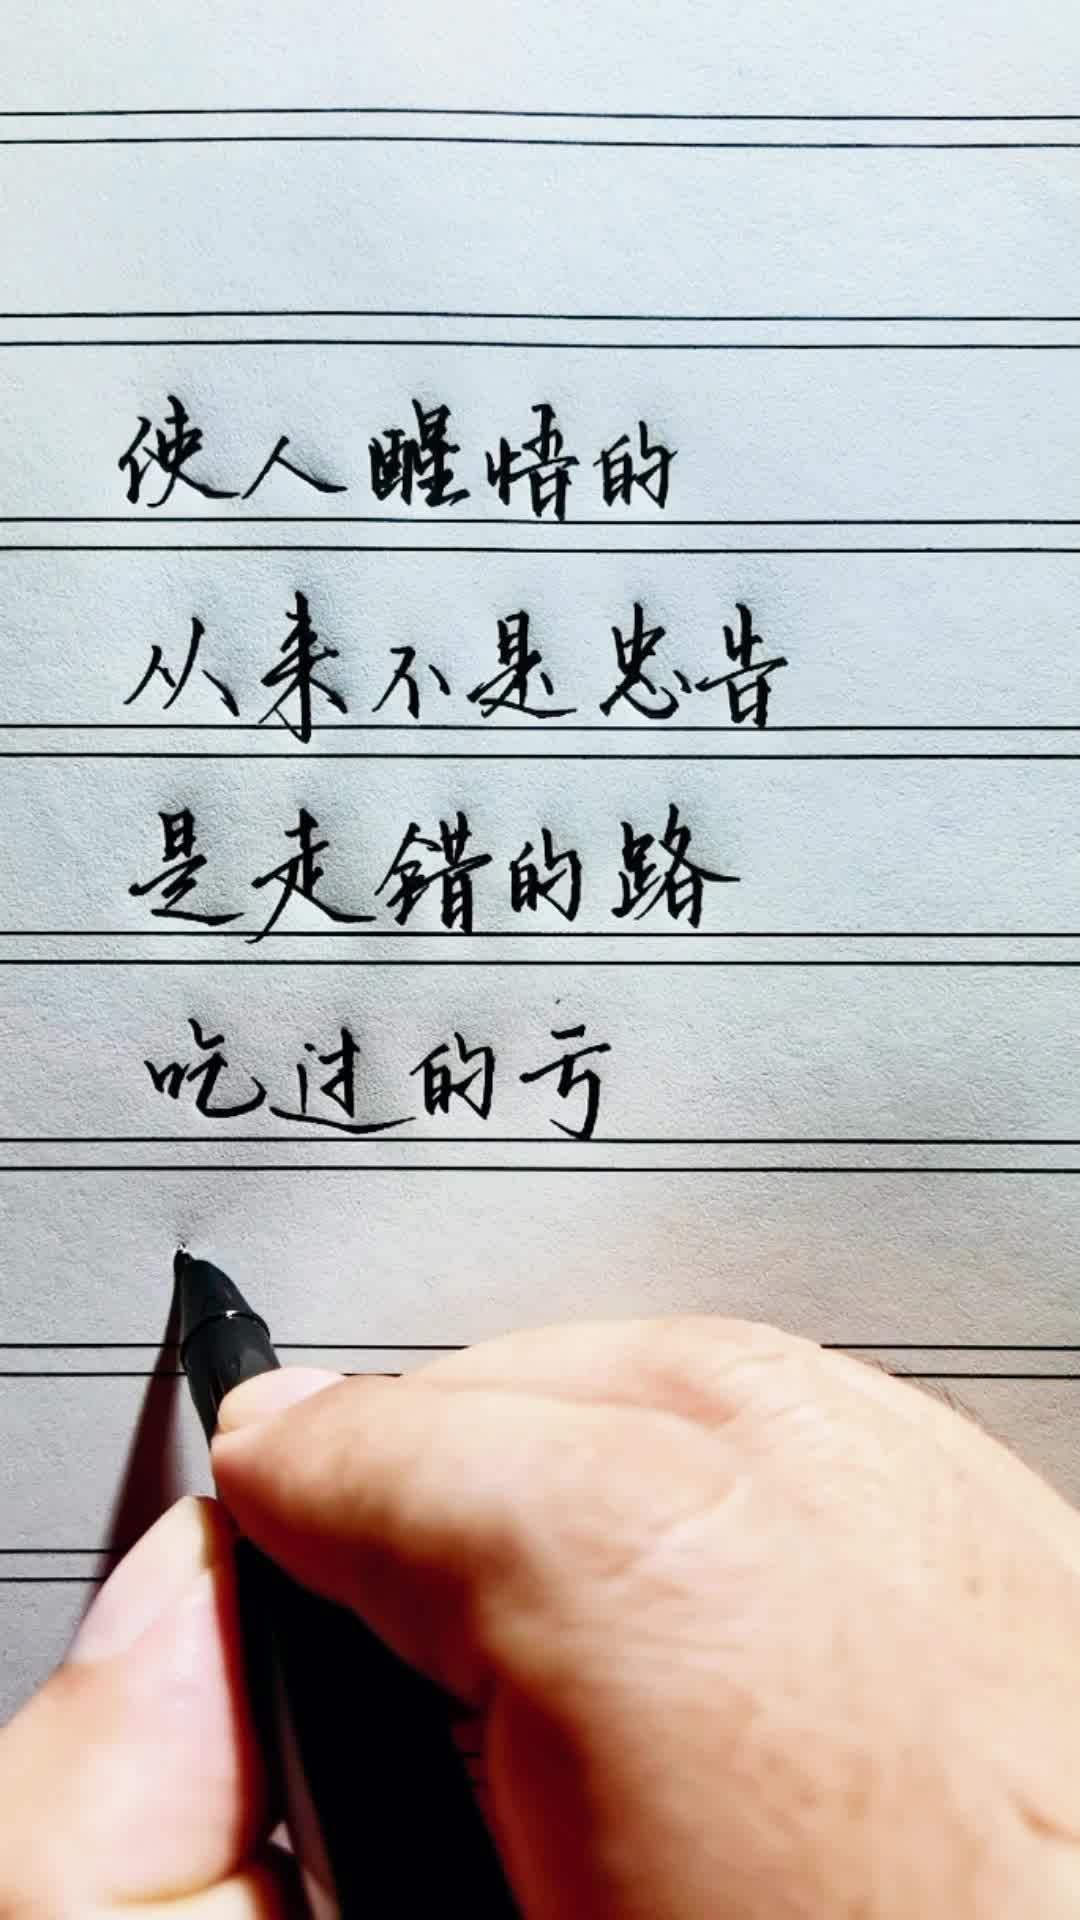 使人醒悟的
从来不是忠告
是走错的路
吃过的亏